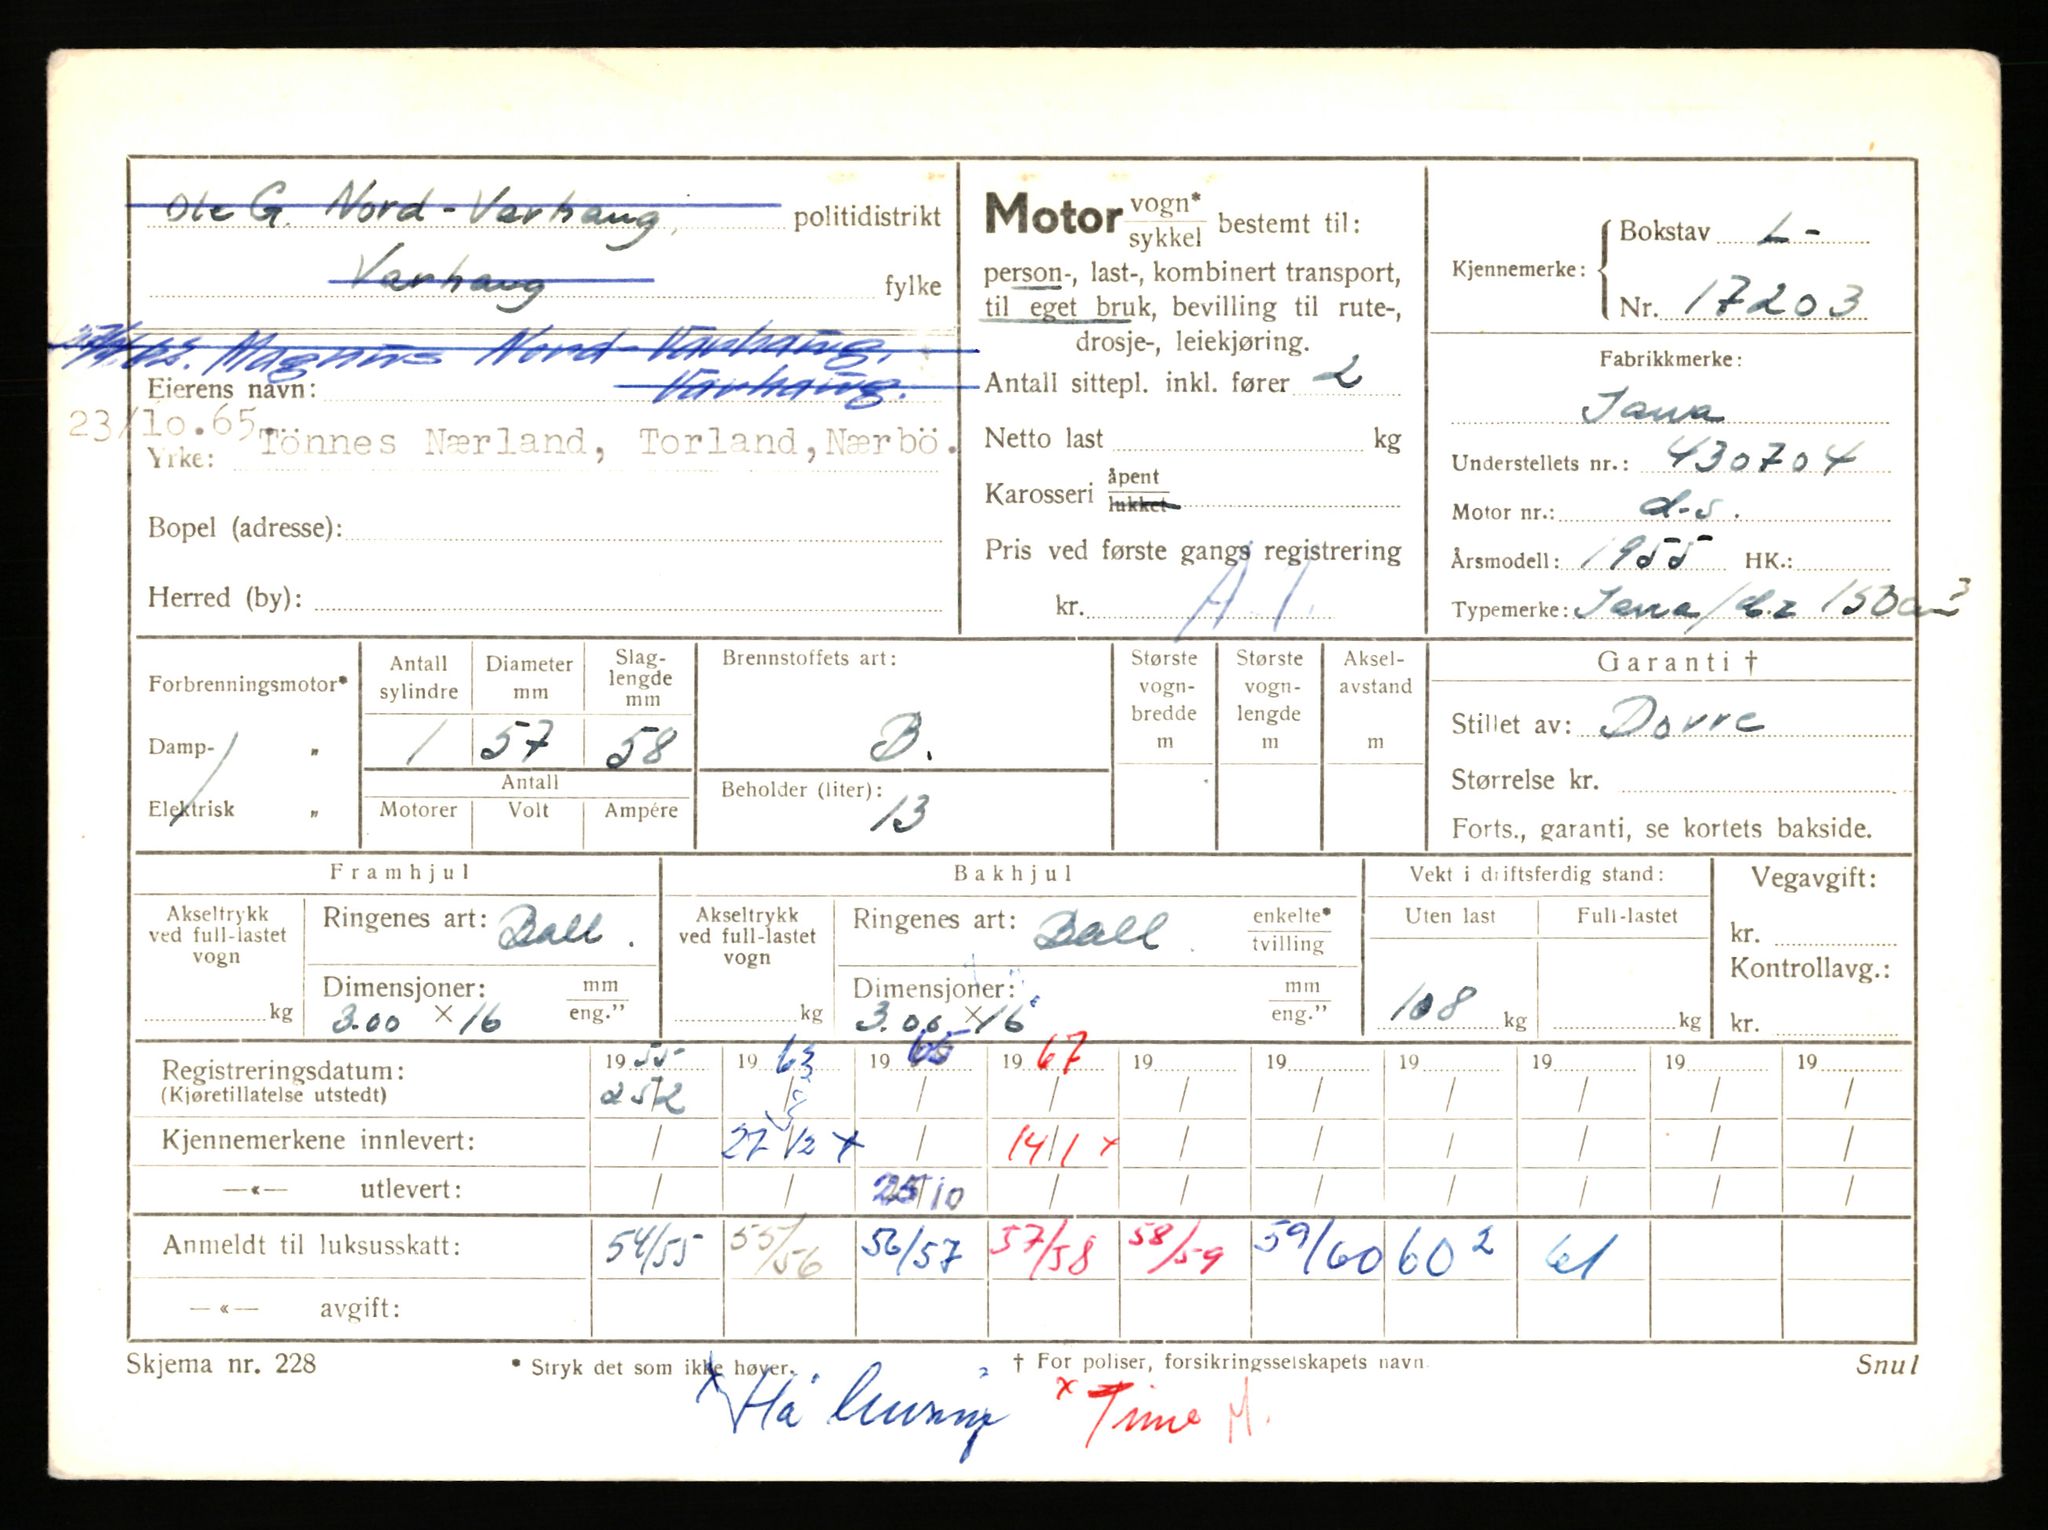 Ole G. Nord-Varhaug, politidistrikt
Varhaug fylke
Magnus Nord-Varhaug,
Eierens navn: Varhaug.
23/10.65. Tönnes Nærland, Torland, Nærbö.
Yrke:
Bopel (adresse):
Herred (by):
Motor vogn* / sykkel bestemt til:
person-, last-, kombinert transport,
til eget bruk, bevilling til rute-,
drosje-, leiekjøring.
Antall sittepl. inkl. fører 2
Netto last kg
Karosseri åpent / lukket
Pris ved første gangs registrering
kr. A 1
Kjennemerke: Bokstav L-
Nr. 17203
Fabrikkmerke:
Jawa
Understellets nr.: 430704
Motor nr.: d.s.
Årsmodell: 1955 HK.:
Typemerke: Jawa/cz 150 cm³
Forbrenningsmotor*
Damp- „
Elektrisk „
Antall sylindre 1
Diameter mm 57
Slaglengde mm 58
Antall
Motorer Volt Ampére
Brennstoffets art:
B.
Beholder (liter):
13
Største vogn-bredde m
Største vogn-lengde m
Aksel-avstand m
Garanti †
Stillet av: Dovre
Størrelse kr.
Forts., garanti, se kortets bakside.
Framhjul
Akseltrykk ved full-lastet vogn kg
Ringenes art: Ball.
Dimensjoner: mm / eng."
3.00 × 16
Bakhjul
Akseltrykk ved full-lastet vogn kg
Ringenes art: Ball. enkelte* / tvilling
Dimensjoner: mm / eng."
3.00 × 16
Vekt i driftsferdig stand:
Uten last Full-lastet
108 kg kg
Vegavgift:
kr.
Kontrollavg.:
kr.
Registreringsdatum: 1955 1963 1965 1967 19 19 19 19 19 19
(Kjøretillatelse utstedt) 25/2 / / / / / / / / /
Kjennemerkene innlevert: / 27/12 x / 14/1 x / / / / / /
—«— utlevert: / / 25/10 / / / / / / /
Anmeldt til luksusskatt: 54/55 55/56 56/57 57/58 58/59 59/60 60² 61
—«— avgift:
Skjema nr. 228 * Stryk det som ikke høver. † For poliser, forsikringsselskapets navn. Snul
x Hå x Time M.